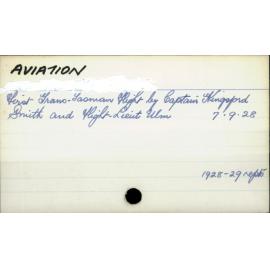 AVIATION
First Trans-Tasman Flight by Captain Kingsford
Smith and Flight-Lieut Ulm 7.9.28
1928-29 repts